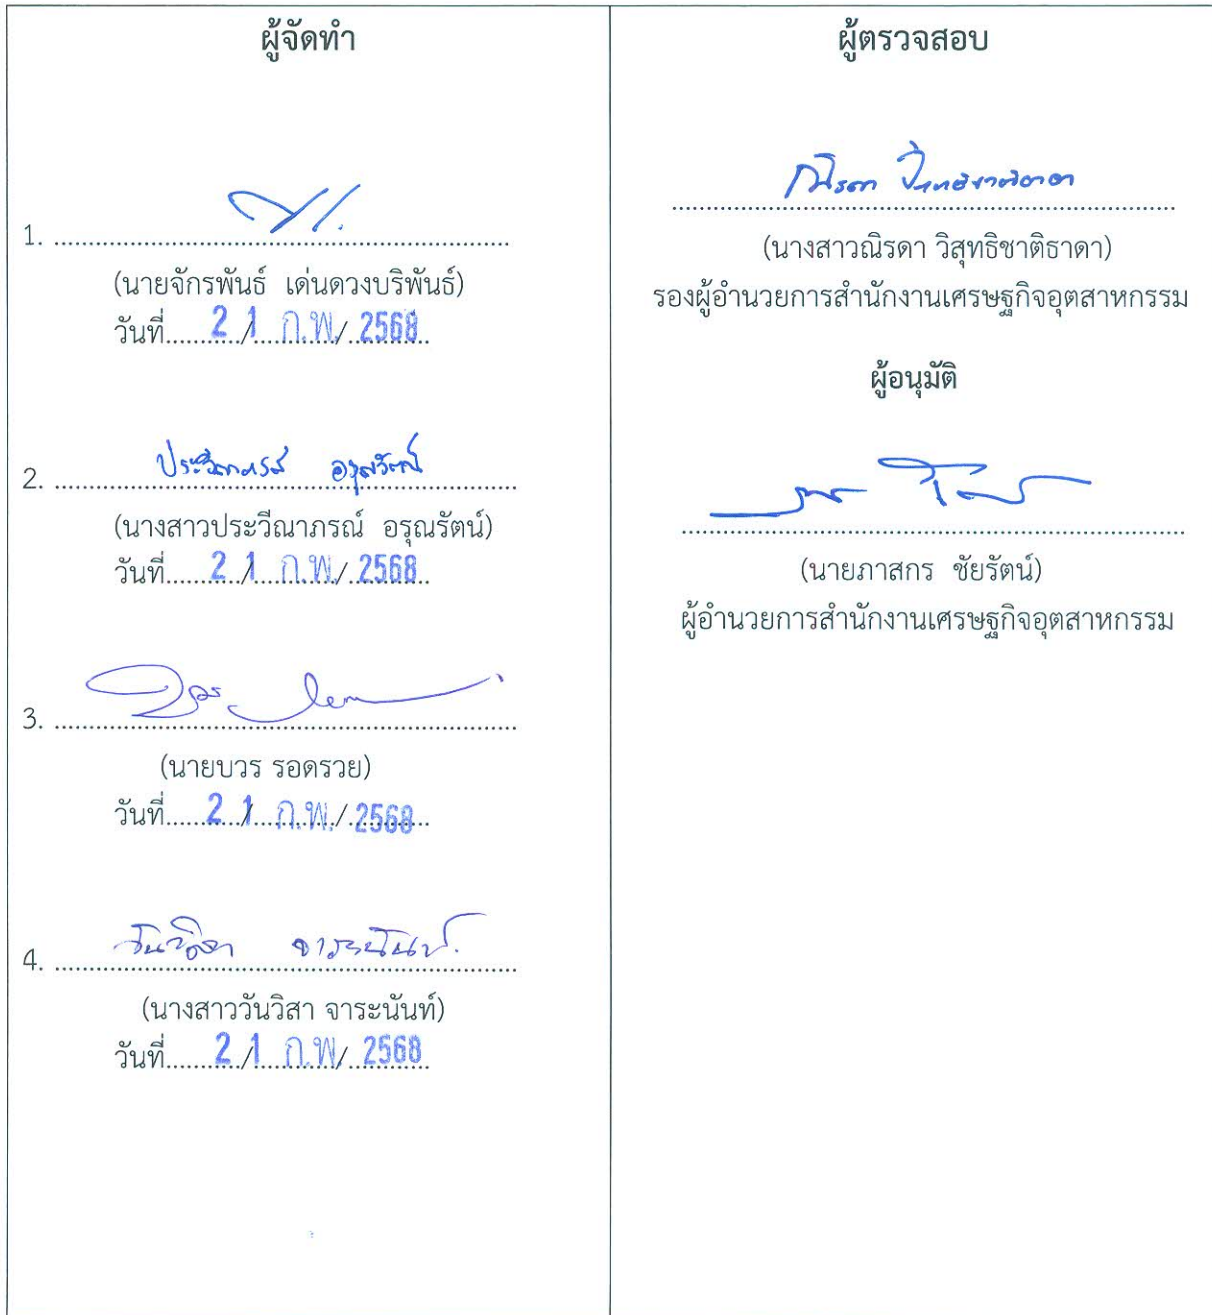 ผู้จัดทำ
1. ........................................
(นายจักรพันธ์ เด่นดวงบริพันธ์)
วันที่ 21 / ก.พ. / 2568
2. ประวีณาภรณ์ อรุณรัตน์
(นางสาวประวีณาภรณ์ อรุณรัตน์)
วันที่ 21 / ก.พ. / 2568
3. ........................................
(นายบวร รอดรวย)
วันที่ 21 / ก.พ. / 2568
4. วันวิสา จาระนันท์
(นางสาววันวิสา จาระนันท์)
วันที่ 21 / ก.พ. / 2568
ผู้ตรวจสอบ
ณิรดา วิสุทธิชาติธาดา
(นางสาวณิรดา วิสุทธิชาติธาดา)
รองผู้อำนวยการสำนักงานเศรษฐกิจอุตสาหกรรม
ผู้อนุมัติ
(นายภาสกร ชัยรัตน์)
ผู้อำนวยการสำนักงานเศรษฐกิจอุตสาหกรรม